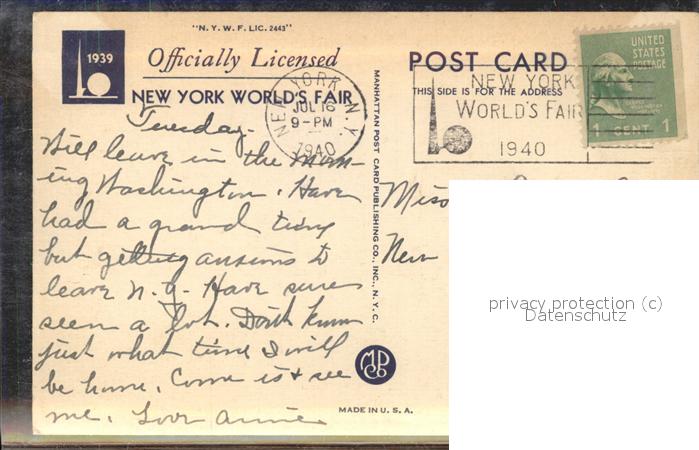 "N.Y.W.F. LIC. 2443"
1939
Officially Licensed
NEW YORK WORLD'S FAIR
POST CARD
THIS SIDE IS FOR THE ADDRESS
UNITED
STATES
POSTAGE
1 CENT 1
NEW YORK, N.Y.
JUL 16
9-PM
1940
NEW YORK
WORLD'S FAIR
1940
Tuesday.
Will leave in the morn-
ing Washington. Have
had a grand time
but getting anxious to
leave N.Y. Have sure
seen a lot. Don't know
just what time I will
be home. Come is & see
me. Love Annie
MANHATTAN POST CARD PUBLISHING CO., INC., N.Y.C.
MPC
CO
MADE IN U.S.A.
Miss
New
privacy protection (c)
Datenschutz